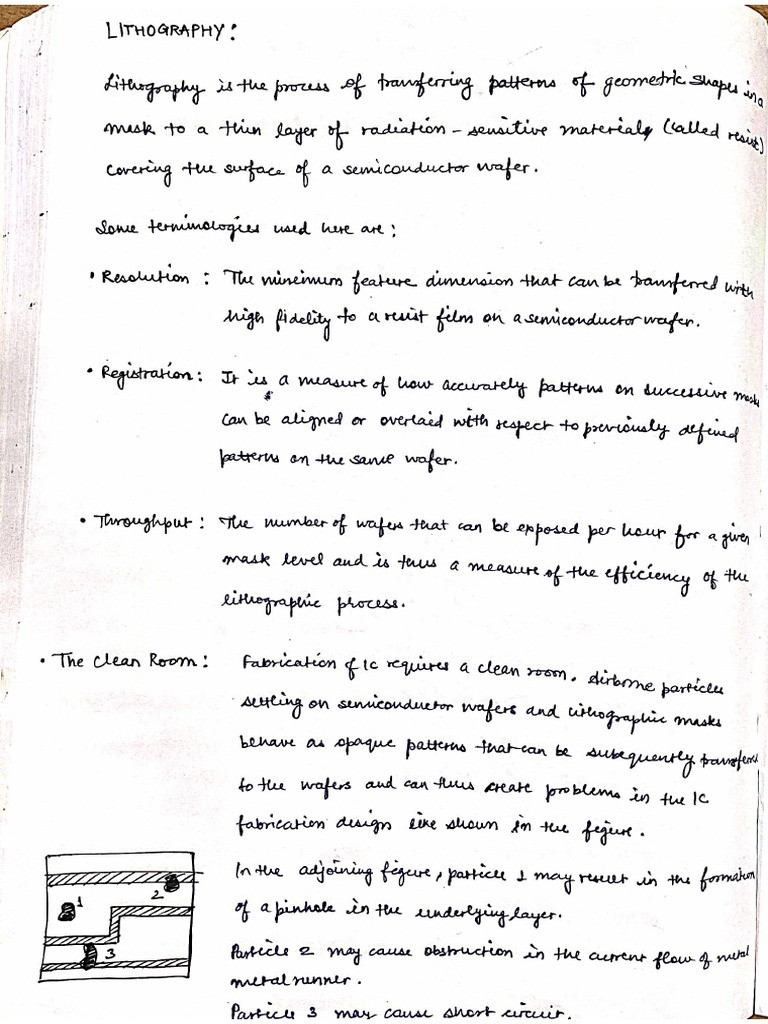 LITHOGRAPHY:
Lithography is the process of transferring patterns of geometric shapes in a
mask to a thin layer of radiation - sensitive material, (called resist)
covering the surface of a semiconductor wafer.
Some terminologies used here are:
• Resolution : The minimum feature dimension that can be transferred with
high fidelity to a resist film on a semiconductor wafer.
• Registration: It is a measure of how accurately patterns on successive mask
can be aligned or overlaid with respect to previously defined
patterns on the same wafer.
• Throughput : The number of wafers that can be exposed per hour for a given
mask level and is thus a measure of the efficiency of the
lithographic process.
• The Clean Room : Fabrication of IC requires a clean room. Airborne particles
settling on semiconductor wafers and lithographic masks
behave as opaque patterns that can be subsequently transferred
to the wafers and can thus create problems in the IC
fabrication design like shown in the figure.
In the adjoining figure, particle 1 may result in the formation
of a pinhole in the underlying layer.
Particle 2 may cause obstruction in the current flow of metal
metal runner.
Particle 3 may cause short circuit.
2
1
3